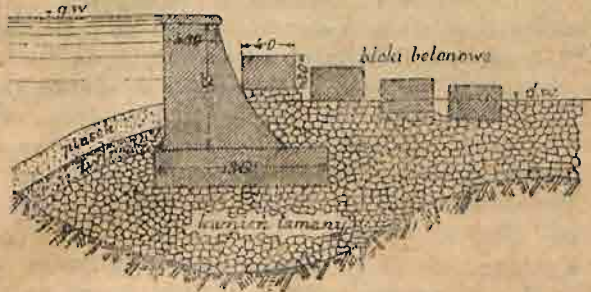 g.w
4·0
bloki betonowe
d.w.
piasek
kamień łamany